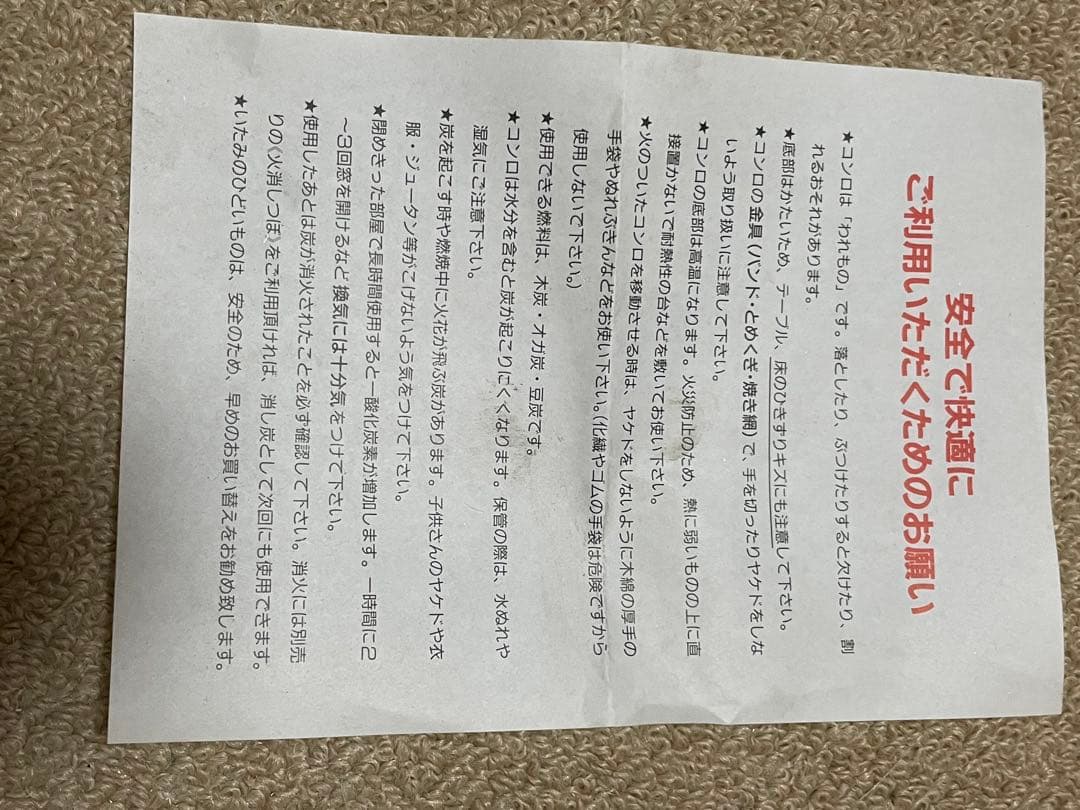 安全で快適に
ご利用いただくためのお願い
★コンロは「われもの」です。落としたり、ぶつけたりすると欠けたり、割
れるおそれがあります。
★底部はかたいため、テーブル、床のひきずりキズにも注意して下さい。
★コンロの金具(バンド・とめくぎ・焼き網)で、手を切ったりヤケドをしな
いよう取り扱いに注意して下さい。
★コンロの底部は高温になります。火災防止のため、熱に弱いものの上に直
接置かないで耐熱性の台などを敷いてお使い下さい。
★火のついたコンロを移動させる時は、ヤケドをしないように木綿の厚手の
手袋やぬれぶきんなどをお使い下さい。(化繊やゴムの手袋は危険ですから
使用しないで下さい。)
★使用できる燃料は、木炭・オガ炭・豆炭です。
★コンロは水分を含むと炭が起こりにくくなります。保管の際は、水ぬれや
湿気にご注意下さい。
★炭を起こす時や燃焼中に火花が飛ぶ炭があります。子供さんのヤケドや衣
服・ジュータン等がこげないよう気をつけて下さい。
★閉めきった部屋で長時間使用すると一酸化炭素が増加します。一時間に2
~3回窓を開けるなど換気には十分気をつけて下さい。
★使用したあとは炭が消火されたことを必ず確認して下さい。消火には別売
りの《火消しつぼ》をご利用頂ければ、消し炭として次回にも使用できます。
★いたみのひどいものは、安全のため、早めのお買い替えをお勧め致します。